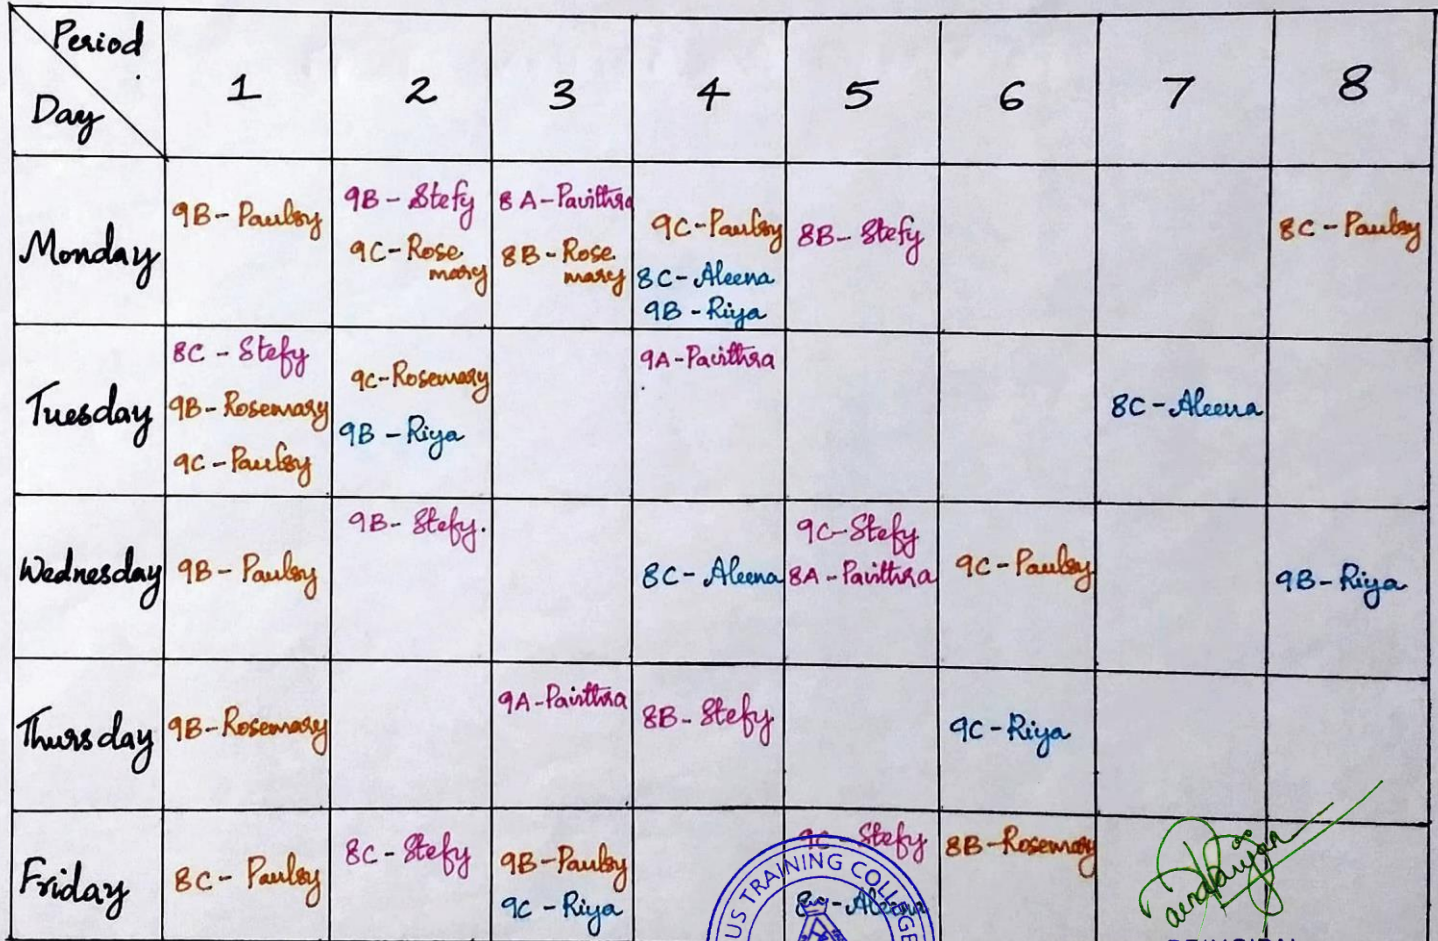 Period
Day
1 2 3 4 5 6 7 8
Monday
9B - Paulsy
9B - Stefy
9C - Rose
mary
8A - Pavithra
8B - Rose
mary
9C - Paulsy
8C - Aleena
9B - Riya
8B - Stefy
8C - Paulsy
Tuesday
8C - Stefy
9B - Rosemary
9C - Paulsy
9C - Rosemary
9B - Riya
9A - Pavithra
8C - Aleena
Wednesday
9B - Paulsy
9B - Stefy.
8C - Aleena
9C - Stefy
8A - Pavithra
9C - Paulsy
9B - Riya
Thursday
9B - Rosemary
9A - Pavithra
8B - Stefy
9C - Riya
Friday
8C - Paulsy
8C - Stefy
9B - Paulsy
9C - Riya
9C - Stefy
- Aleena
8B - Rosemary
US TRAINING COLLEGE
PRINCIPAL